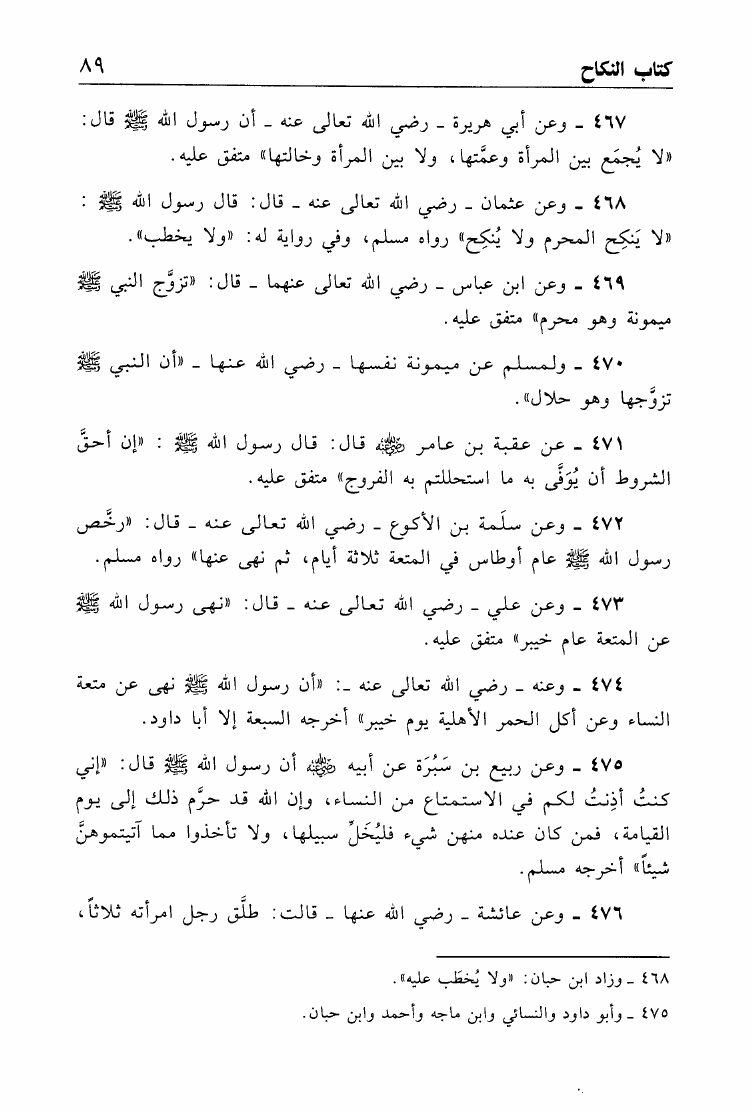 كتاب النكاح ٨٩
٤٦٧ ـ وعن أبي هريرة ـ رضي الله تعالى عنه ـ أن رسول الله ﷺ قال:
«لا يُجمَع بين المرأة وعمَّتها، ولا بين المرأة وخالتها» متفق عليه.
٤٦٨ ـ وعن عثمان ـ رضي الله تعالى عنه ـ قال: قال رسول الله ﷺ :
«لا يَنكِح المحرم ولا يُنكِح» رواه مسلم، وفي رواية له: «ولا يخطب».
٤٦٩ ـ وعن ابن عباس ـ رضي الله تعالى عنهما ـ قال: «تزوَّج النبي ﷺ
ميمونة وهو محرم» متفق عليه.
٤٧٠ ـ ولمسلم عن ميمونة نفسها ـ رضي الله عنها ـ «أن النبي ﷺ
تزوَّجها وهو حلال».
٤٧١ ـ عن عقبة بن عامر رضي الله عنه قال: قال رسول الله ﷺ : «إن أحقَّ
الشروط أن يُوَفَّى به ما استحللتم به الفروج» متفق عليه.
٤٧٢ ـ وعن سلَمة بن الأكوع ـ رضي الله تعالى عنه ـ قال: «رخَّص
رسول الله ﷺ عام أوطاس في المتعة ثلاثة أيام، ثم نهى عنها» رواه مسلم.
٤٧٣ ـ وعن علي ـ رضي الله تعالى عنه ـ قال: «نهى رسول الله ﷺ
عن المتعة عام خيبر» متفق عليه.
٤٧٤ ـ وعنه ـ رضي الله تعالى عنه ـ: «أن رسول الله ﷺ نهى عن متعة
النساء وعن أكل الحمر الأهلية يوم خيبر» أخرجه السبعة إلا أبا داود.
٤٧٥ ـ وعن ربيع بن سَبُرَة عن أبيه رضي الله عنه أن رسول الله ﷺ قال: «إني
كنتُ أذِنتُ لكم في الاستمتاع من النساء، وإن الله قد حرَّم ذلك إلى يوم
القيامة، فمن كان عنده منهن شيء فليُخَلِّ سبيلها، ولا تأخذوا مما آتيتموهنَّ
شيئاً» أخرجه مسلم.
٤٧٦ ـ وعن عائشة ـ رضي الله عنها ـ قالت: طلَّق رجل امرأته ثلاثاً،
٤٦٨ ـ وزاد ابن حبان: «ولا يُخطَب عليه».
٤٧٥ ـ وأبو داود والنسائي وابن ماجه وأحمد وابن حبان.